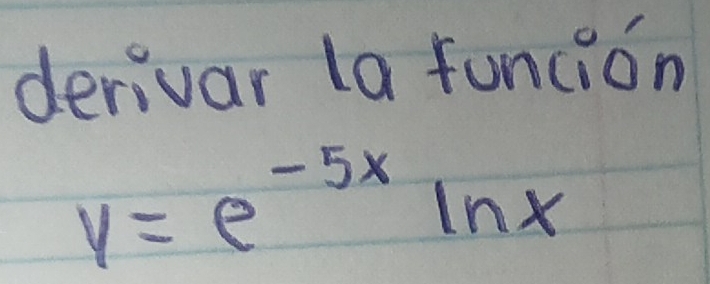 derivar la función
y = e^{-5x} ln x